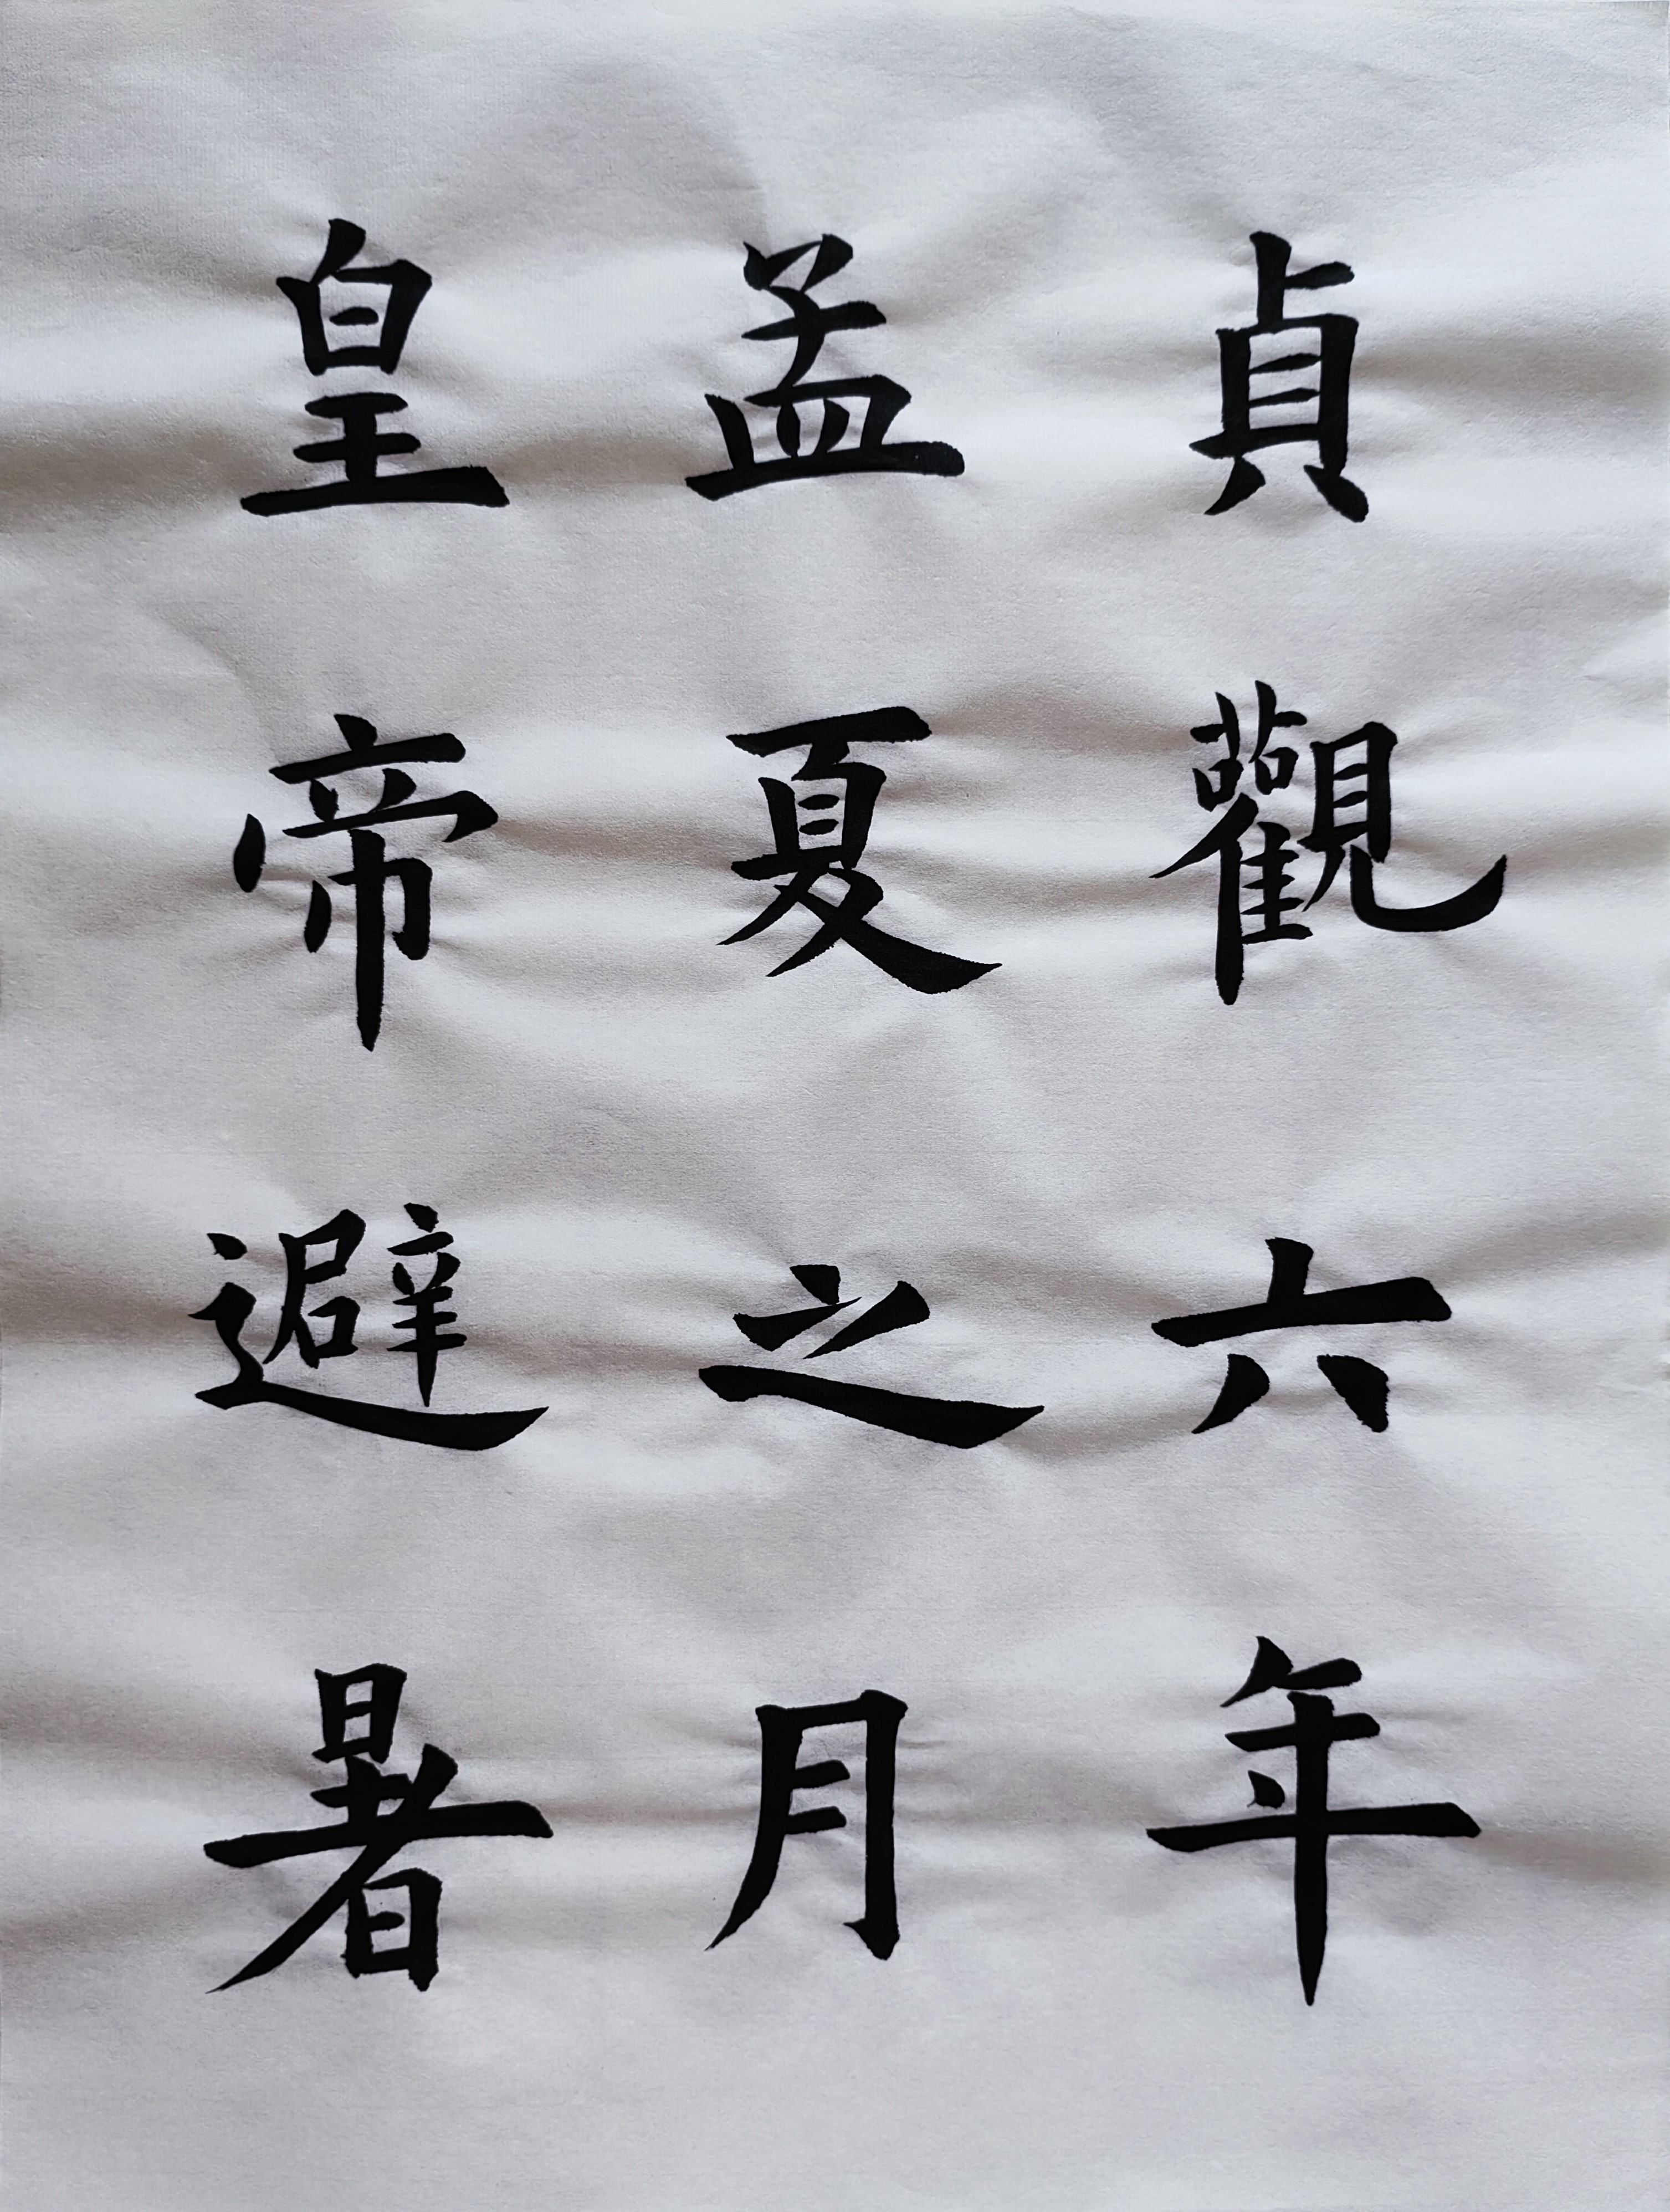 貞觀六年
孟夏之月
皇帝避暑